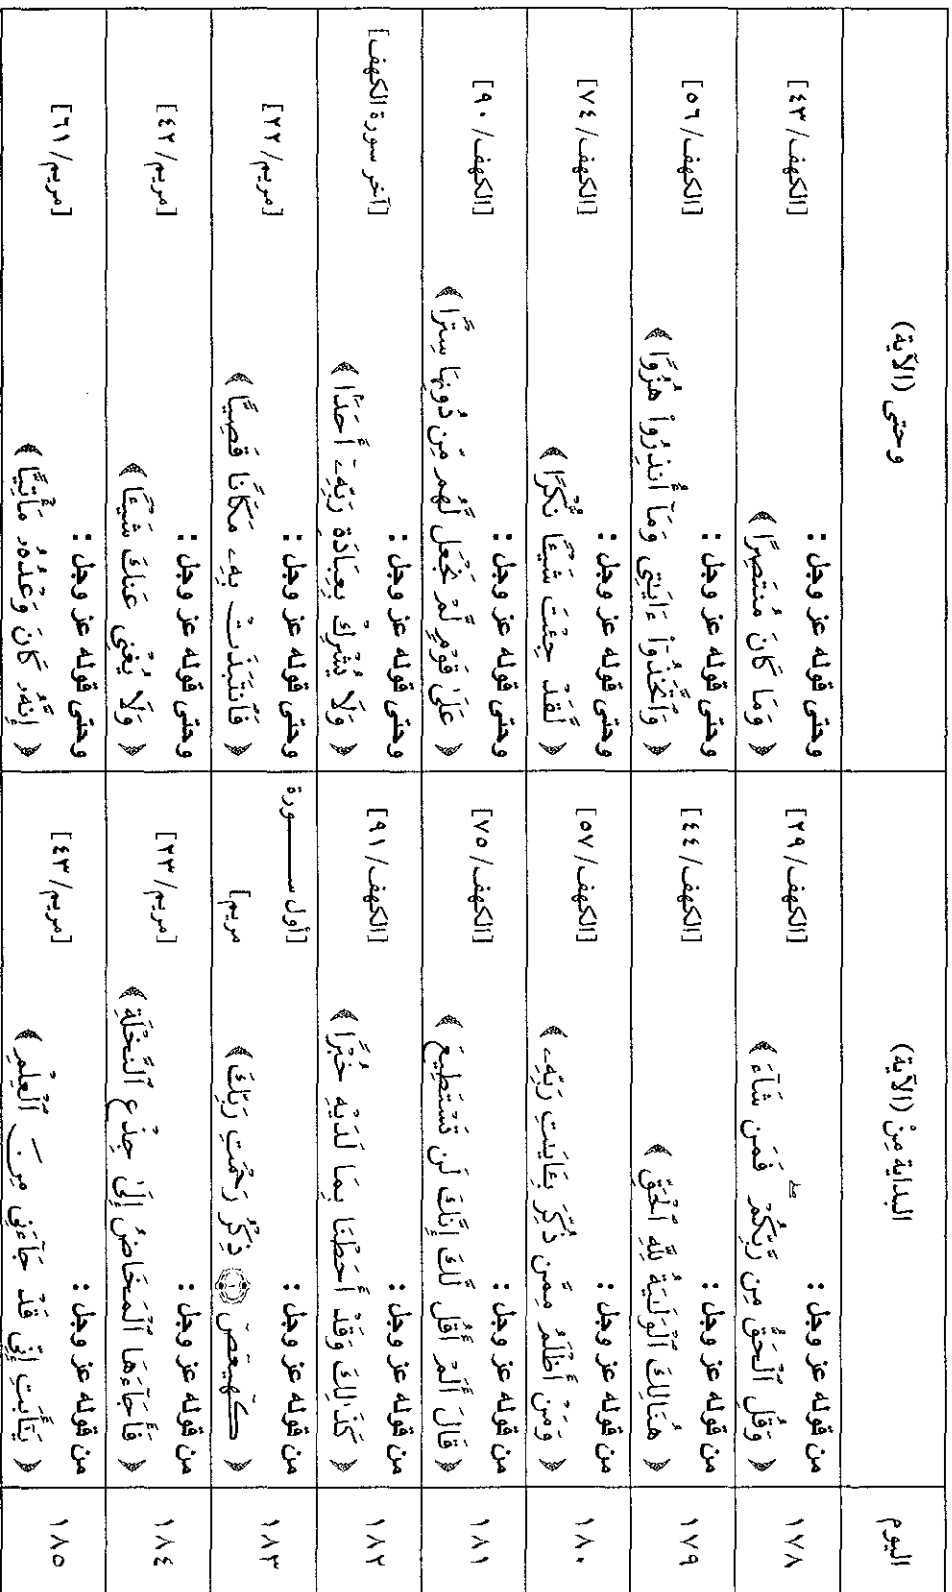 اليوم
البداية مِنْ (الآية)
وحتى (الآية)
١٧٨
من قوله عز وجل :
﴿ وَقُلِ ٱلْحَقُّ مِن رَّبِّكُمْ ۖ فَمَن شَآءَ ﴾
[الكهف/ ٢٩]
وحتى قوله عز وجل :
﴿ وَمَا كَانَ مُنتَصِرًا ﴾
[الكهف/ ٤٣]
١٧٩
من قوله عز وجل :
﴿ هُنَالِكَ ٱلْوَلَـٰيَةُ لِلَّهِ ٱلْحَقِّ ﴾
[الكهف/ ٤٤]
وحتى قوله عز وجل :
﴿ وَٱتَّخَذُوٓا۟ ءَايَـٰتِى وَمَآ أُنذِرُوا۟ هُزُوًا ﴾
[الكهف/ ٥٦]
١٨٠
من قوله عز وجل :
﴿ وَمَنْ أَظْلَمُ مِمَّن ذُكِّرَ بِـَٔايَـٰتِ رَبِّهِۦ ﴾
[الكهف/ ٥٧]
وحتى قوله عز وجل :
﴿ لَّقَدْ جِئْتَ شَيْـًٔا نُّكْرًا ﴾
[الكهف/ ٧٤]
١٨١
من قوله عز وجل :
﴿ قَالَ أَلَمْ أَقُل لَّكَ إِنَّكَ لَن تَسْتَطِيعَ ﴾
[الكهف/ ٧٥]
وحتى قوله عز وجل :
﴿ عَلَىٰ قَوْمٍ لَّمْ نَجْعَل لَّهُم مِّن دُونِهَا سِتْرًا ﴾
[الكهف/ ٩٠]
١٨٢
من قوله عز وجل :
﴿ كَذَٰلِكَ وَقَدْ أَحَطْنَا بِمَا لَدَيْهِ خُبْرًا ﴾
[الكهف/ ٩١]
وحتى قوله عز وجل :
﴿ وَلَا يُشْرِكْ بِعِبَادَةِ رَبِّهِۦٓ أَحَدًۢا ﴾
[آخر سورة الكهف]
١٨٣
من قوله عز وجل :
﴿ كٓهيعٓصٓ ۝١ ذِكْرُ رَحْمَتِ رَبِّكَ ﴾
[أول ســـورة
مريم]
وحتى قوله عز وجل :
﴿ فَٱنتَبَذَتْ بِهِۦ مَكَانًا قَصِيًّا ﴾
[مريم/ ٢٢]
١٨٤
من قوله عز وجل :
﴿ فَأَجَآءَهَا ٱلْمَخَاضُ إِلَىٰ جِذْعِ ٱلنَّخْلَةِ ﴾
[مريم/ ٢٣]
وحتى قوله عز وجل :
﴿ وَلَا يُغْنِى عَنكَ شَيْـًٔا ﴾
[مريم/ ٤٢]
١٨٥
من قوله عز وجل :
﴿ يَـٰٓأَبَتِ إِنِّى قَدْ جَآءَنِى مِنَ ٱلْعِلْمِ ﴾
[مريم/ ٤٣]
وحتى قوله عز وجل :
﴿ إِنَّهُۥ كَانَ وَعْدُهُۥ مَأْتِيًّا ﴾
[مريم/ ٦١]